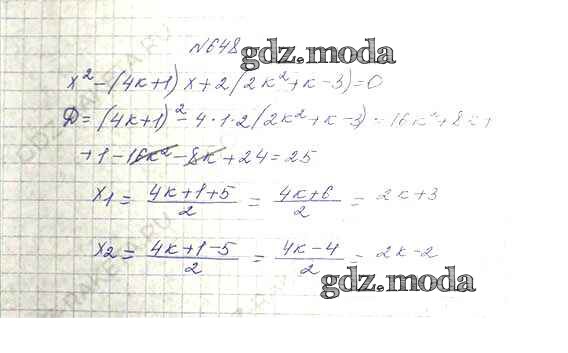 №648
gdz.moda
x² - (4к+1) x + 2 (2к² + к - 3) = 0
Д = (4к+1)² - 4·1·2(2к² + к - 3) = 16к² + 8к +
+ 1 - 16к² - 8к + 24 = 25
x1 = (4к+1+5)/2 = (4к+6)/2 = 2к+3
x2 = (4к+1-5)/2 = (4к-4)/2 = 2к-2
gdz.moda